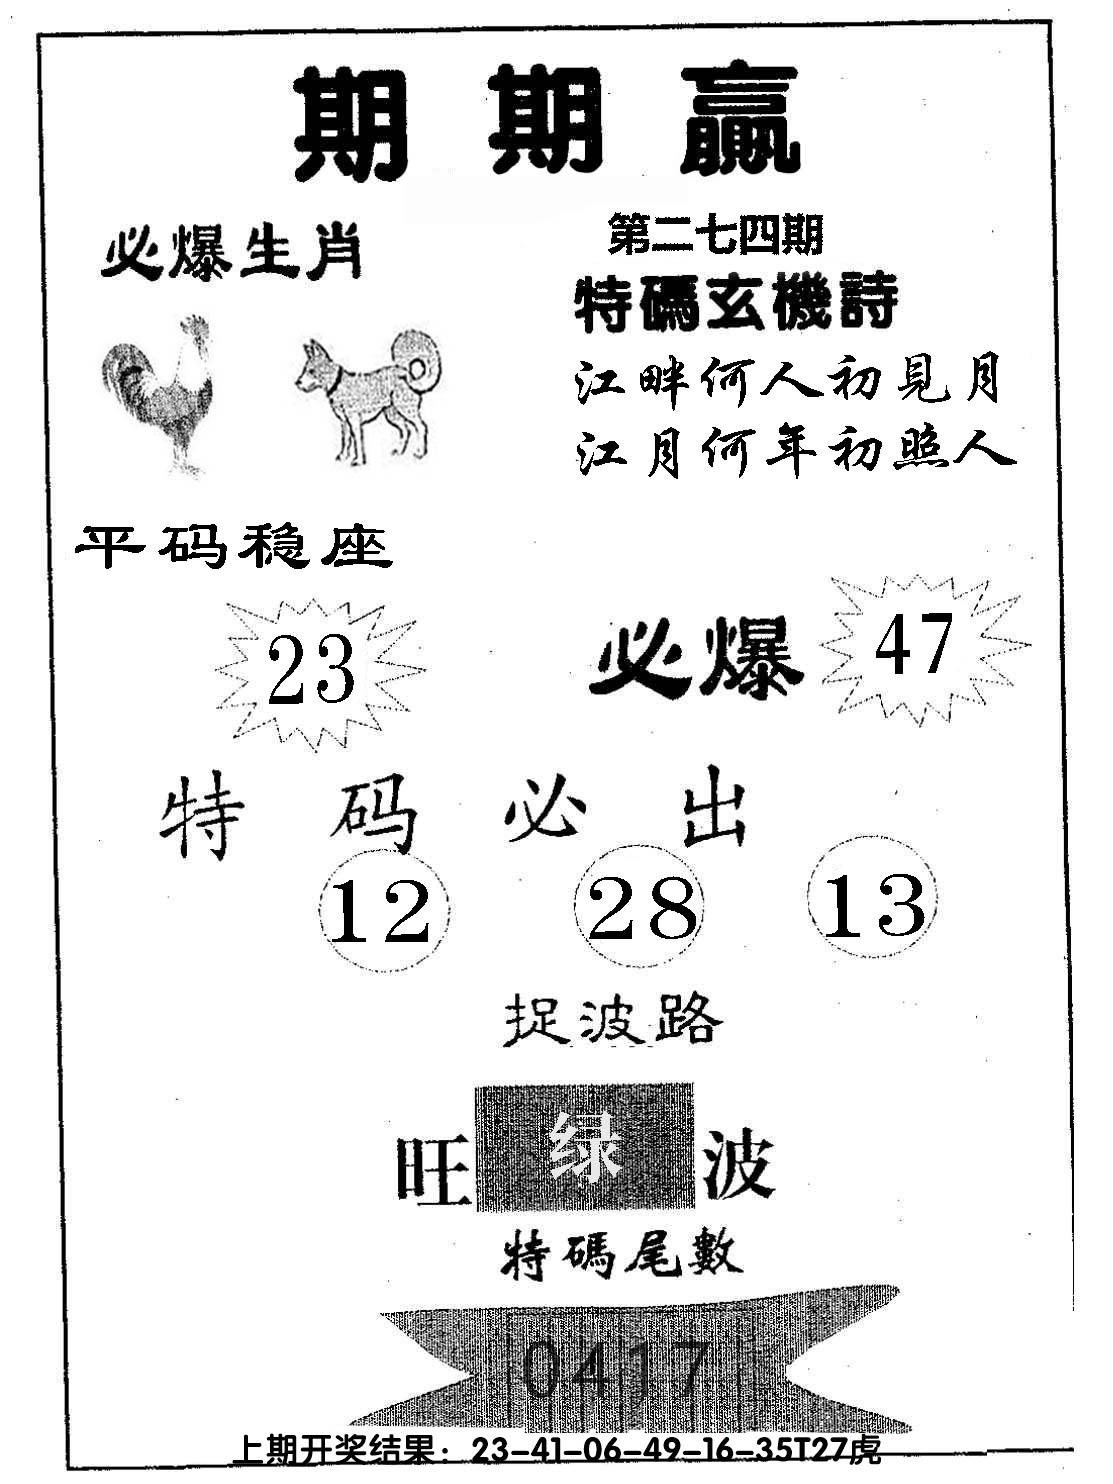 期期贏
必爆生肖
第二七四期
特碼玄機詩
江畔何人初見月
江月何年初照人
平码稳座
23
必爆
47
特码必出
12 28 13
捉波路
旺绿波
特碼尾數
0417
上期开奖结果：23-41-06-49-16-35T27虎